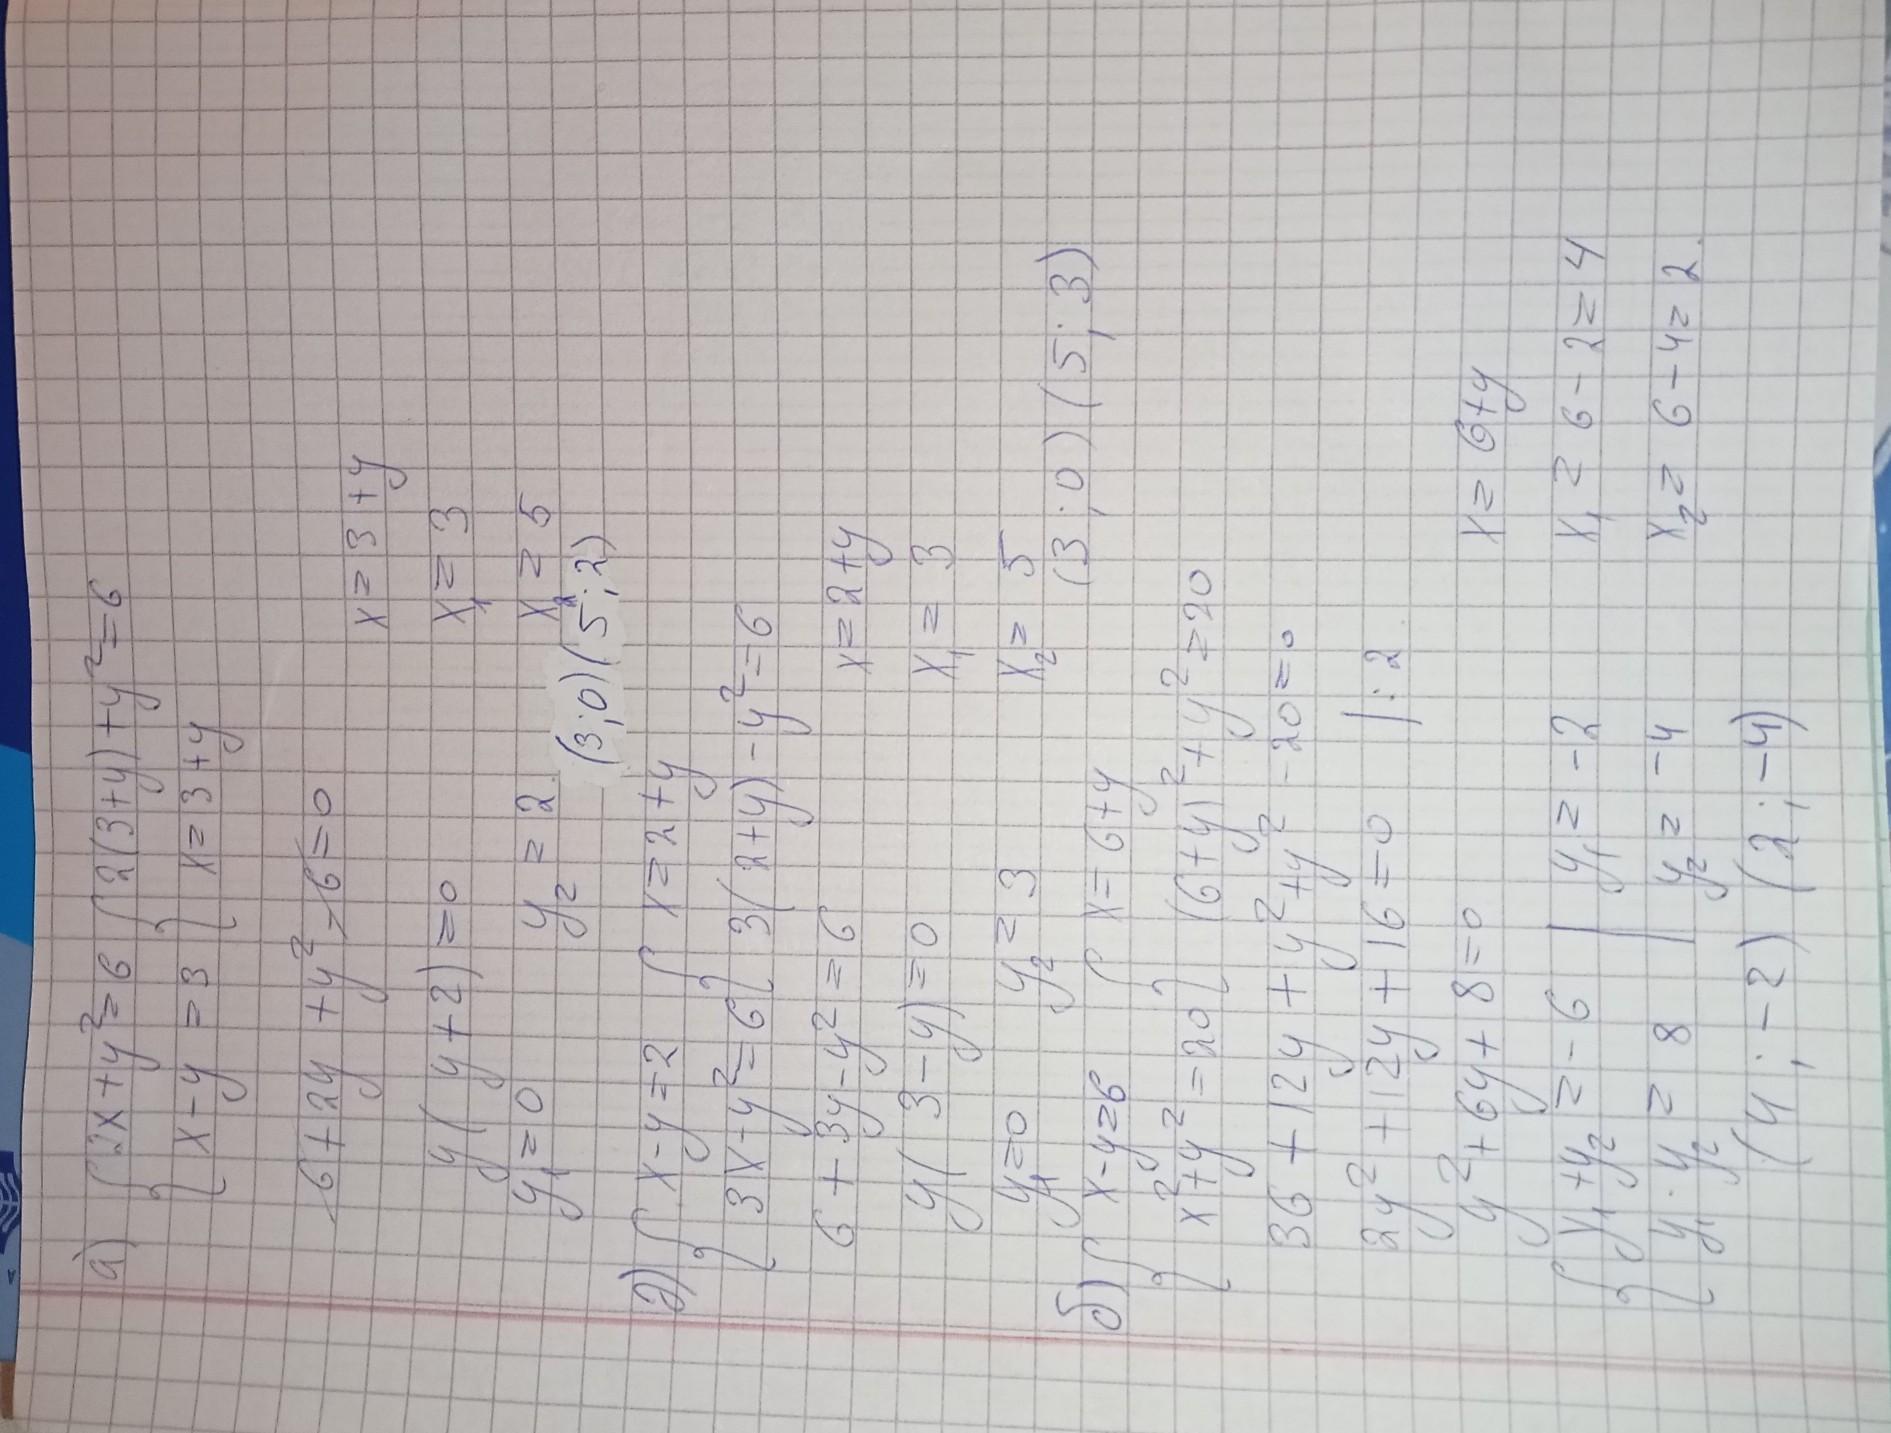 а) { 2x + y² = 6 { 2(3+y) + y² = 6
x - y = 3 x = 3 + y
6 + 2y + y² - 6 = 0
x = 3 + y
y(y + 2) = 0 x₁ = 3
y₁ = 0 y₂ = 2 x₂ = 5
(3; 0) (5; 2)
д) { x - y = 2 { x = 2 + y
3x - y² = 6 3(2+y) - y² = 6
6 + 3y - y² = 6 x = 2 + y
y(3 - y) = 0 x₁ = 3
y₁ = 0 y₂ = 3 x₂ = 5
(3; 0) (5; 3)
б) { x - y = 6 { x = 6 + y
x² + y² = 20 (6+y)² + y² = 20
36 + 12y + y² + y² - 20 = 0
2y² + 12y + 16 = 0 | : 2
y² + 6y + 8 = 0 x = 6 + y
{ y₁ + y₂ = -6 | y₁ = -2 x₁ = 6 - 2 = 4
y₁ · y₂ = 8 | y₂ = -4 x₂ = 6 - 4 = 2.
(4; -2) (2; -4)